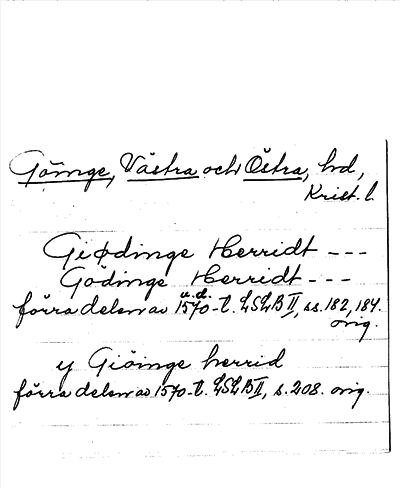 Göinge, Västra och Östra, hd,
Krist. l.
Giødinge Herridt ---
Gödinge Herridt ---
u.d.
förra delen av 1570-t. LSLB II, ss. 182, 184.
orig.
y Giöinge herrid
förra delen av 1570-t. LSLB II, s. 208. orig.